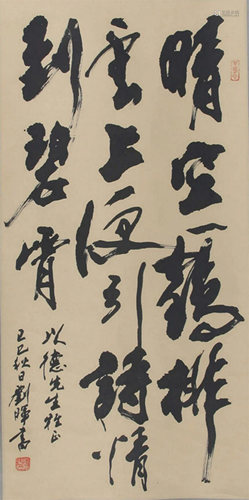 晴空一鶴排
雲上便引詩情
到碧霄
以德先生雅正
己巳秋日劉暉書